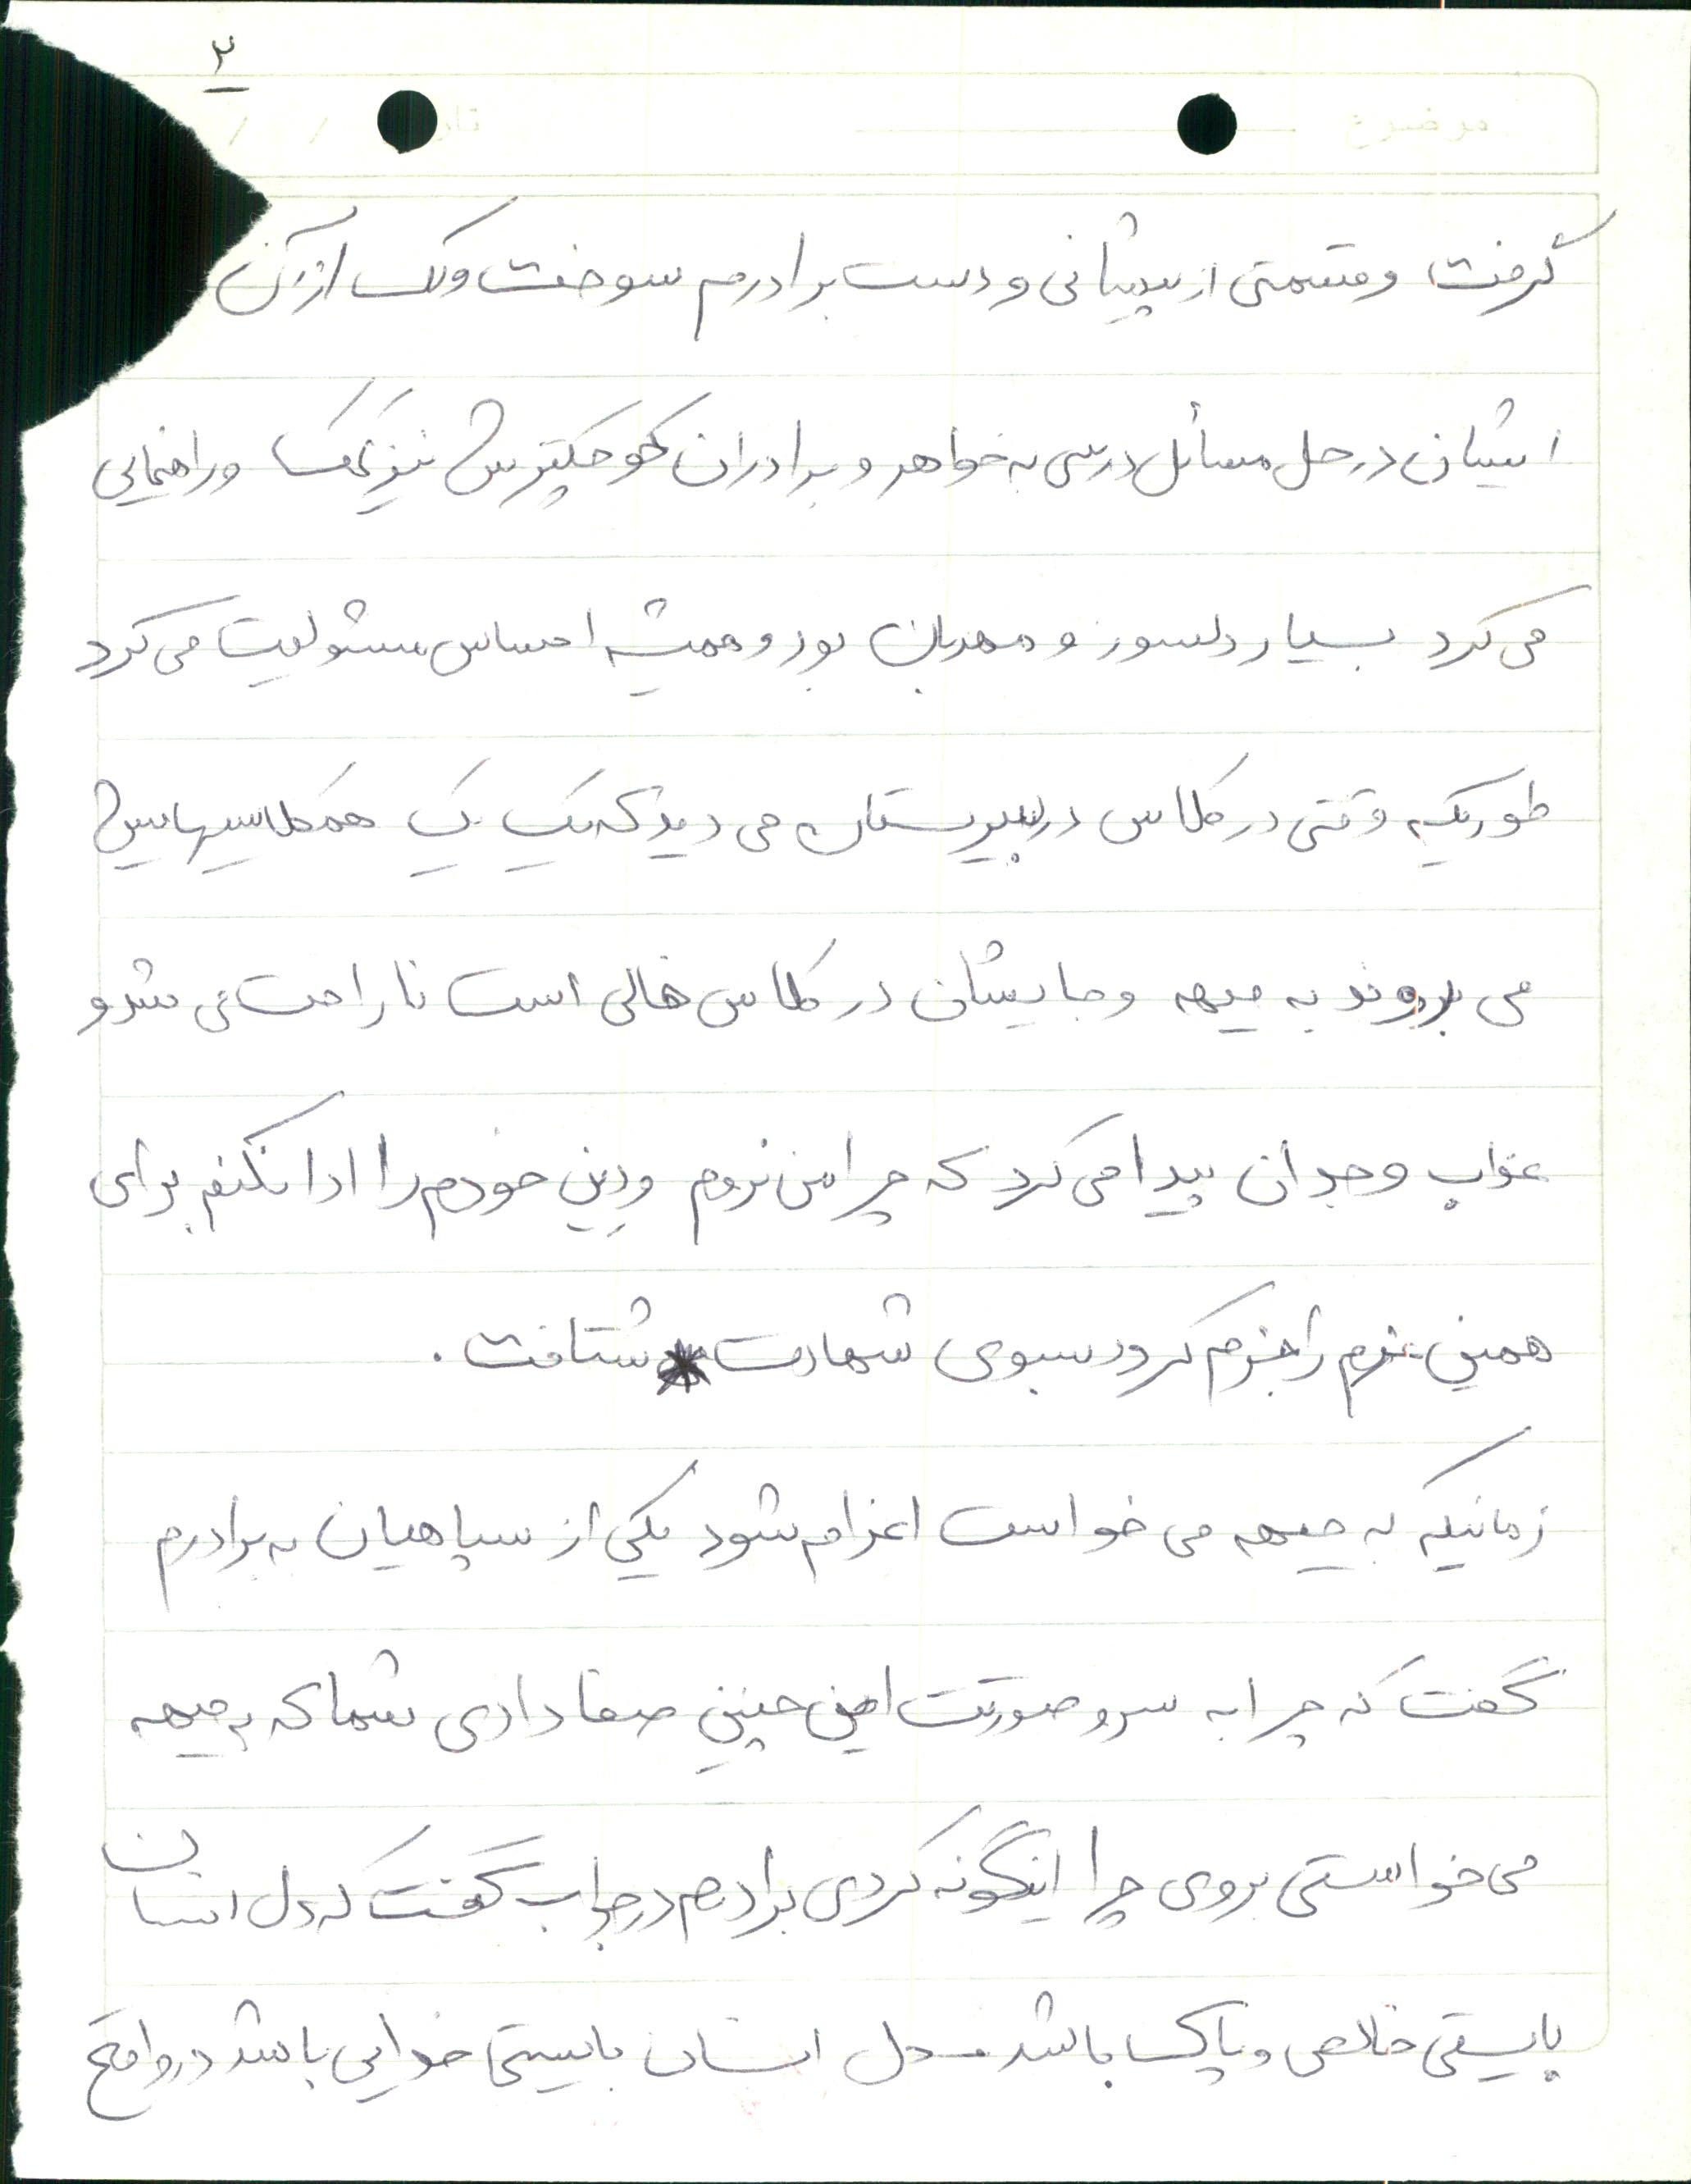 ۲
موضوع
گرفت و قسمتی از پیشانی و دست برادرم سوخت و لک از آن
ایشان در حل مسائل درسی به خواهر و برادران کوچکترش نیز کمک و راهنمایی
می کرد بسیار دلسوز و مهربان بود و همیشه احساس مسئولیت می کرد
طوریکه وقتی در کلاس دبیرستان می دید که یک یک همکلاسیهایش
می روند به جبهه و جایشان در کلاس خالی است ناراحت می شد و
عذاب وجدان پیدا می کرد که چرا من نروم و دین خودم را ادا نکنم برای
همین عزم را جزم کرد و بسوی شهادت شتافت .
زمانیکه به جبهه می خواست اعزام شود یکی از سپاهیان به برادرم
گفت که چرا به سر و صورتت این چنین صفا دادی شما که به جبهه
می خواستی بروی چرا اینگونه کردی برادرم در جواب گفت که دل انسان
بایستی خالص و پاک باشد دل انسان بایستی خدایی باشد در واقع